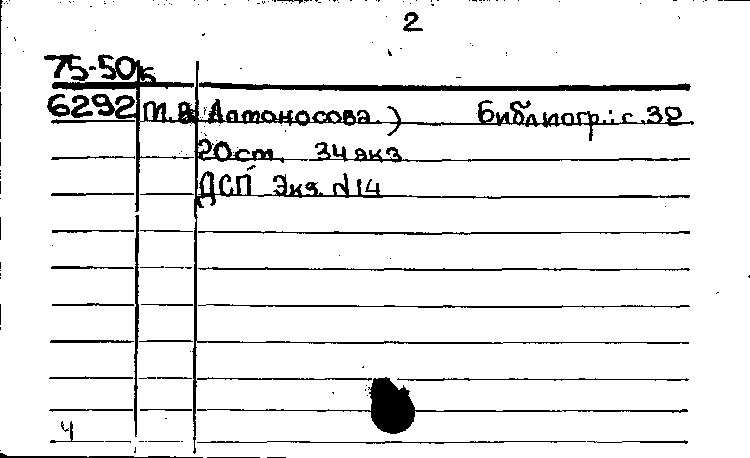 2
75-50к
6292 М.В. Ломоносова.) Библиогр.: с. 32
20 см. 34 экз.
ДСП Экз. №14
4